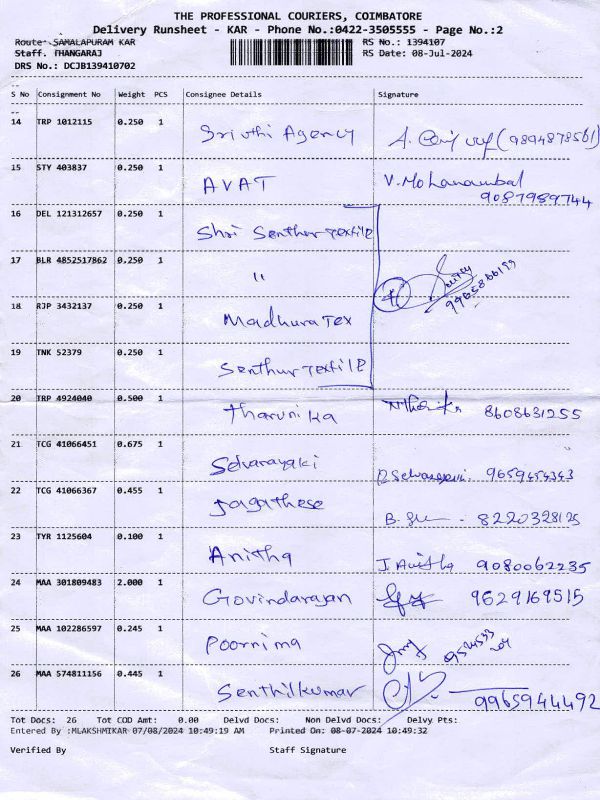 THE PROFESSIONAL COURIERS, COIMBATORE
Delivery Runsheet - KAR - Phone No.:0422-3505555 - Page No.:2
Route: SAMALAPURAM KAR RS No.: 1394107
Staff. THANGARAJ RS Date: 08-Jul-2024
DRS No.: DCJB139410702
S No Consignment No Weight PCS Consignee Details Signature
14 TRP 1012115 0.250 1 Sruthi Agency (9894878561)
15 STY 403837 0.250 1 AVAT V. Mohanambal 9087989744
16 DEL 121312657 0.250 1 Shri Senthur Textile
17 BLR 4852517862 0.250 1 " 9965866199
18 RJP 3432137 0.250 1 Madhura Tex
19 TNK 52379 0.250 1 Senthur Textile
20 TRP 4924040 0.500 1 Tharunika 8608631255
21 TCG 41066451 0.675 1 Selvanayaki 9659454343
22 TCG 41066367 0.455 1 Jagathese 8220328125
23 TYR 1125604 0.100 1 Anitha J. Anitha 9080062235
24 MAA 301809483 2.000 1 Govindarajan 9629169515
25 MAA 102286597 0.245 1 Poornima
26 MAA 574811156 0.445 1 Senthilkumar 9965944492
Tot Docs: 26 Tot COD Amt: 0.00 Delvd Docs: Non Delvd Docs: Delvy Pts:
Entered By :MLAKSHMIKAR 07/08/2024 10:49:19 AM Printed On: 08-07-2024 10:49:32
Verified By Staff Signature